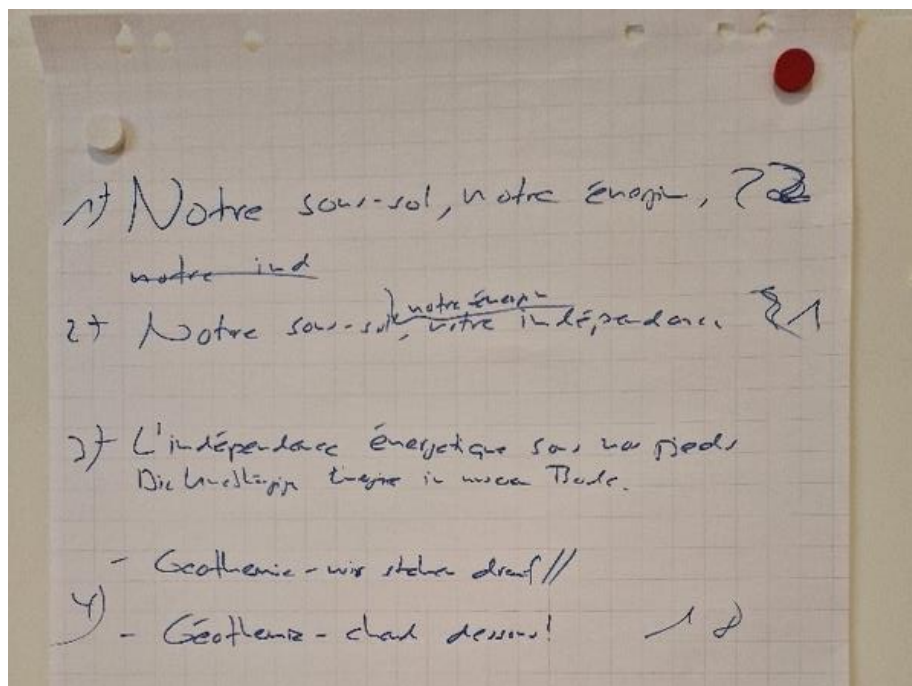 1) Notre sous-sol, notre énergie,
notre ind
notre énergie
2) Notre sous-sol, notre indépendance 21
3) L'indépendance énergétique sous nos pieds
Die Energie in Bode.
- Geothermie - wir stehen drauf!!
4)
- Géothermie - chaud dessous! 18